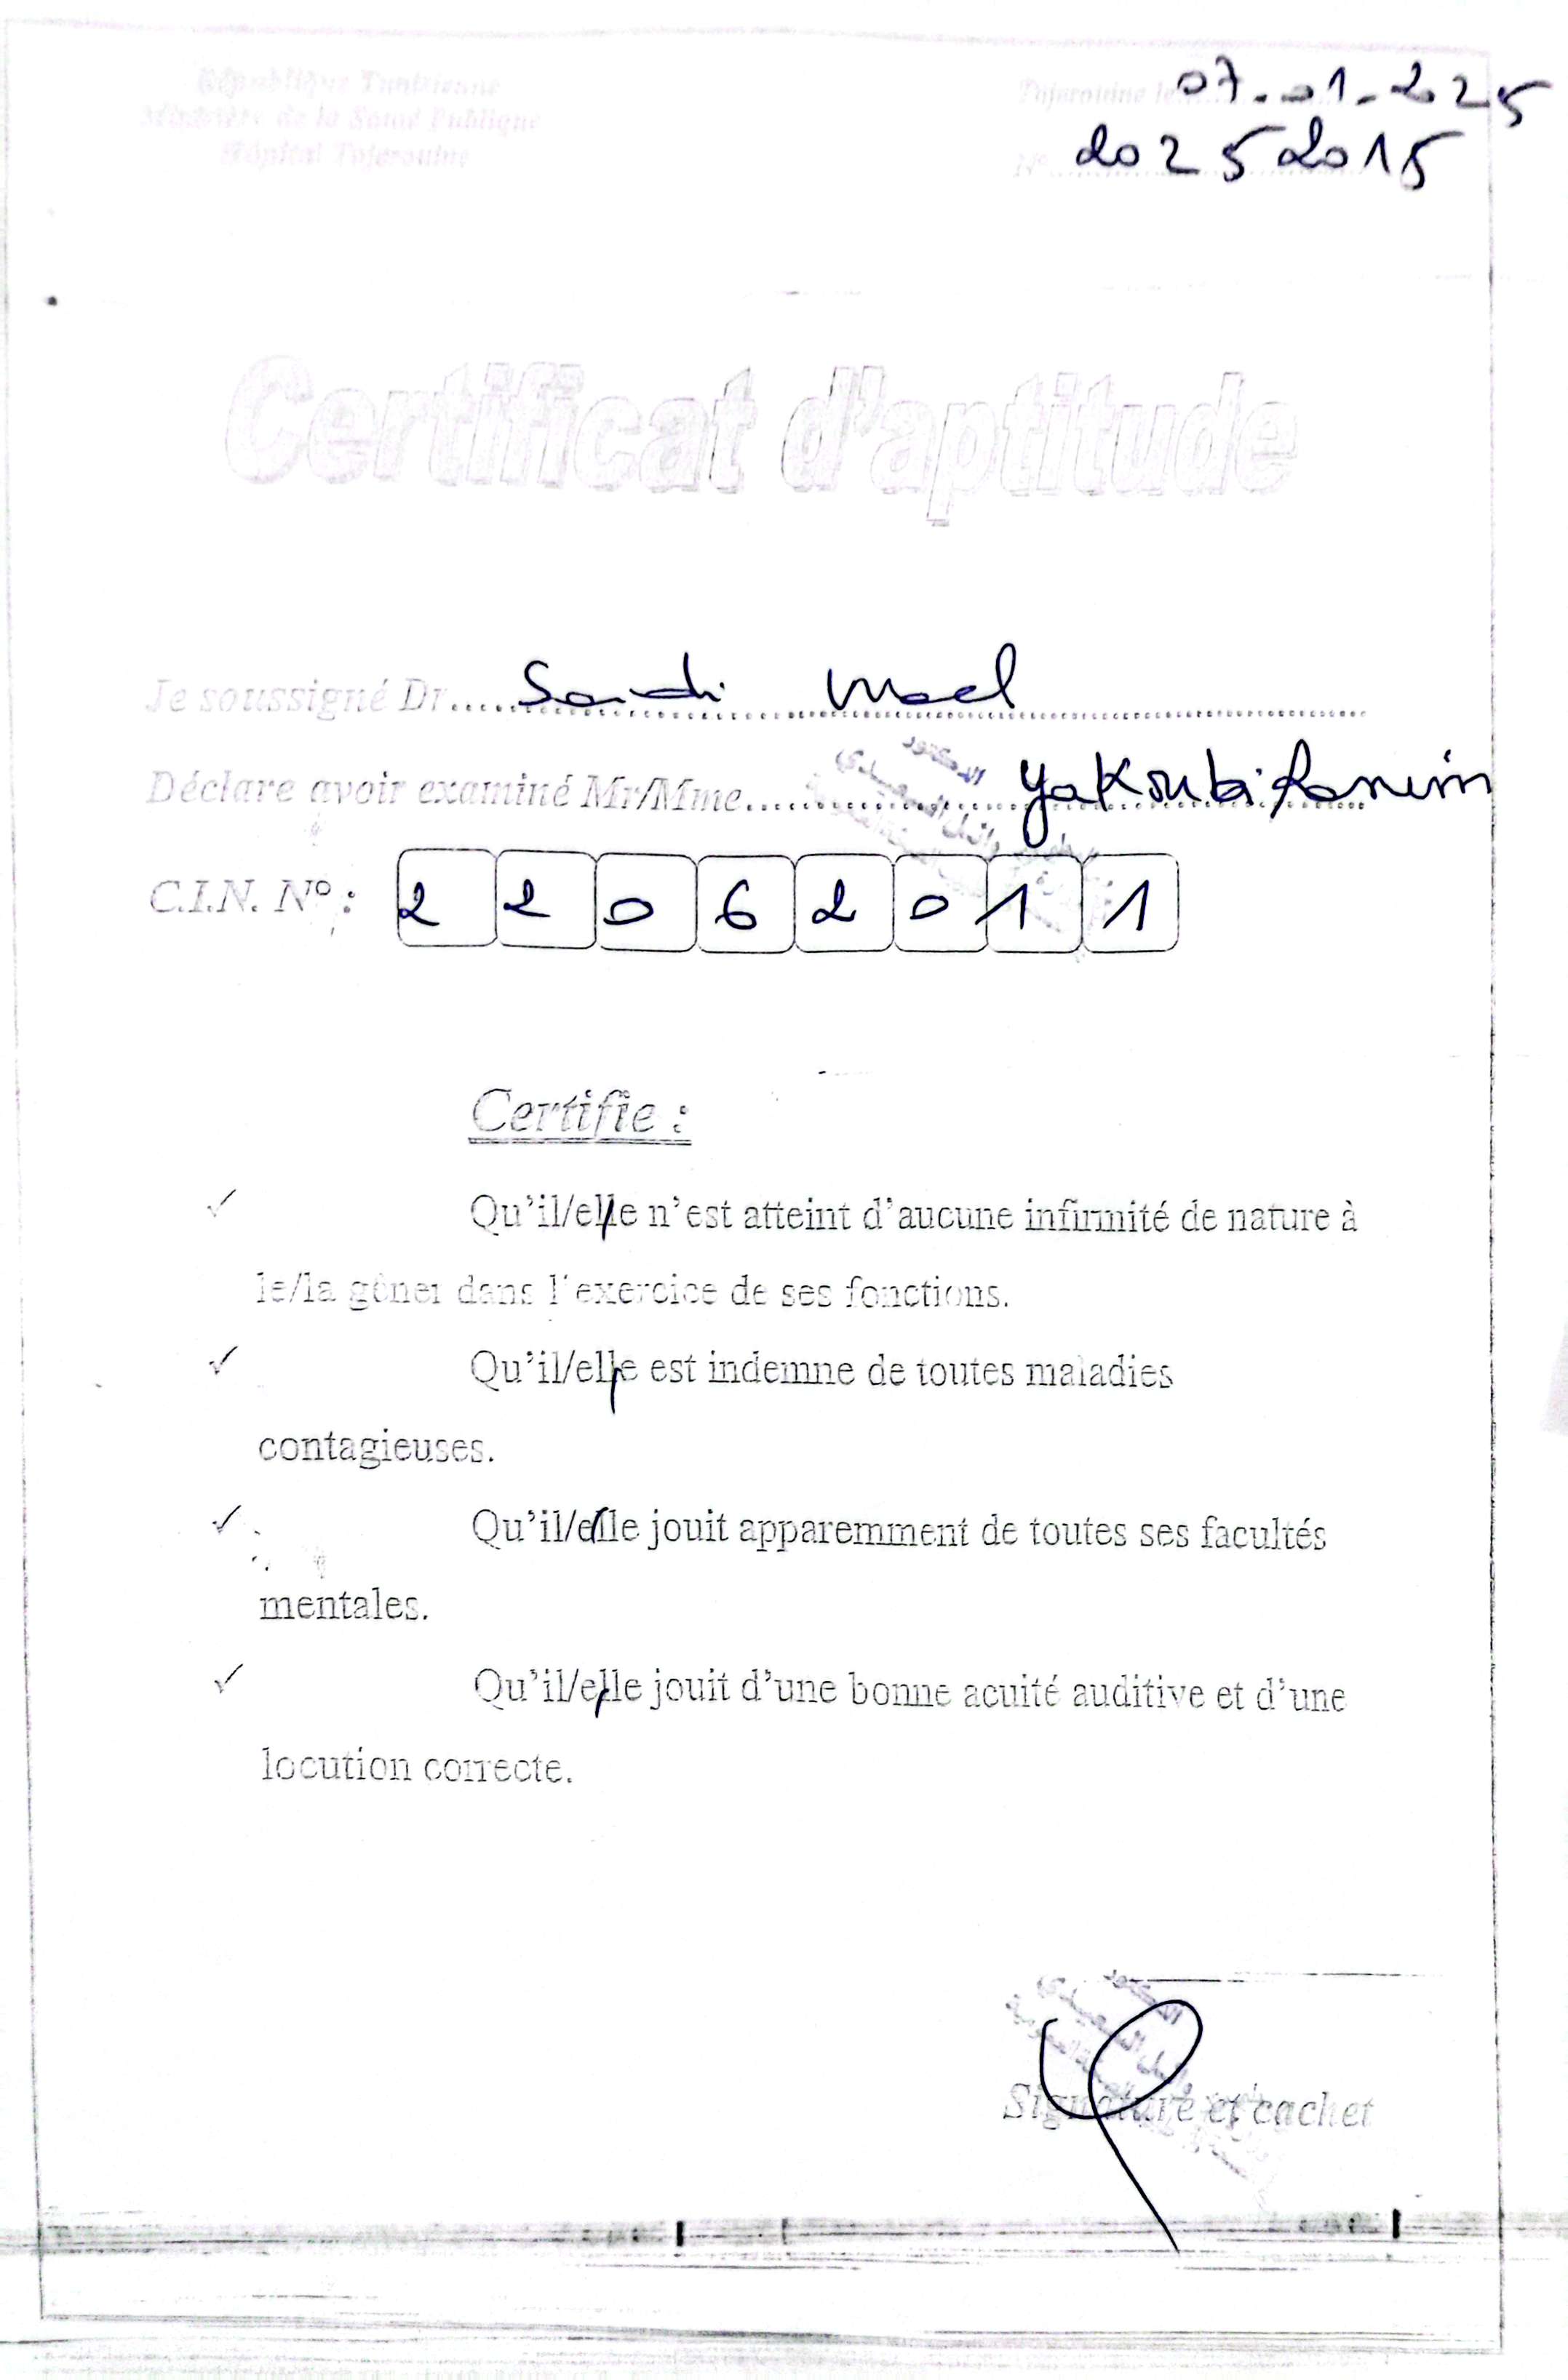 République Tunisienne
Ministère de la Santé Publique
Hôpital Tajerouine
Tajerouine le 07-01-225
N° 20252015
Certificat d'aptitude
Je soussigné Dr Saidi Wael
Déclare avoir examiné Mr/Mme Yakoubi Ranim
C.I.N. N° : 2 2 0 6 2 0 1 1
Certifie :
✓ Qu'il/elle n'est atteint d'aucune infirmité de nature à
le/la gêner dans l'exercice de ses fonctions.
✓ Qu'il/elle est indemne de toutes maladies
contagieuses.
✓ Qu'il/elle jouit apparemment de toutes ses facultés
mentales.
✓ Qu'il/elle jouit d'une bonne acuité auditive et d'une
locution correcte.
Signature et cachet